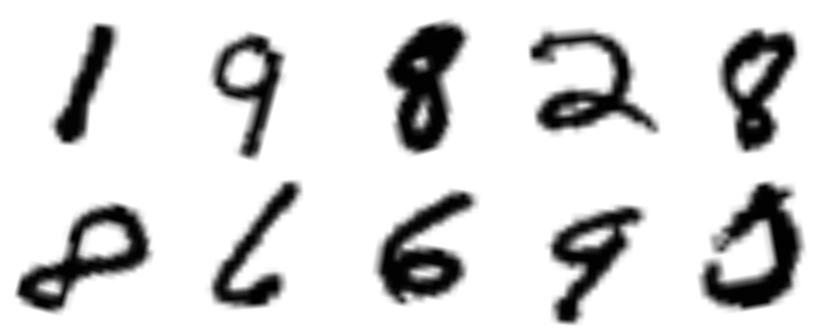 1 9 8 2 8
8 6 6 9 0